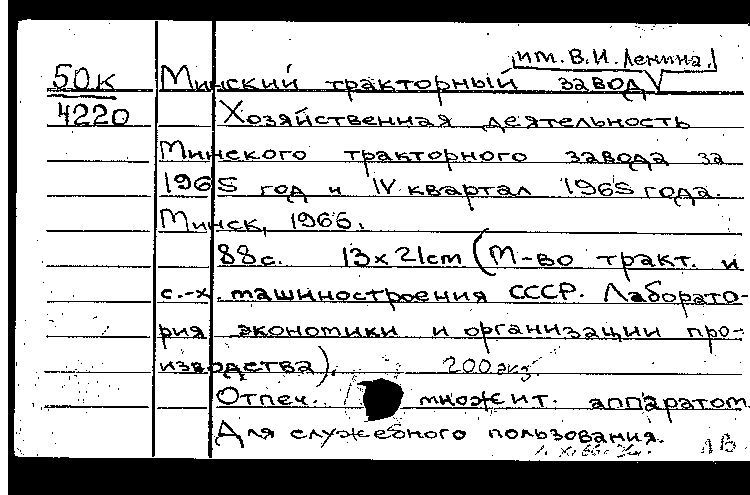 им. В.И. Ленина.
50к Минский тракторный завод
4220 Хозяйственная деятельность
Минского тракторного завода за
1965 год и IV квартал 1965 года.
Минск, 1966.
88с. 13х21cm (М-во тракт. и
с.-х. машиностроения СССР. Лаборато-
рия экономики и организации про-
изводства). 200 экз.
Отпеч. множит. аппаратом
Для служебного пользования.
ЛВ